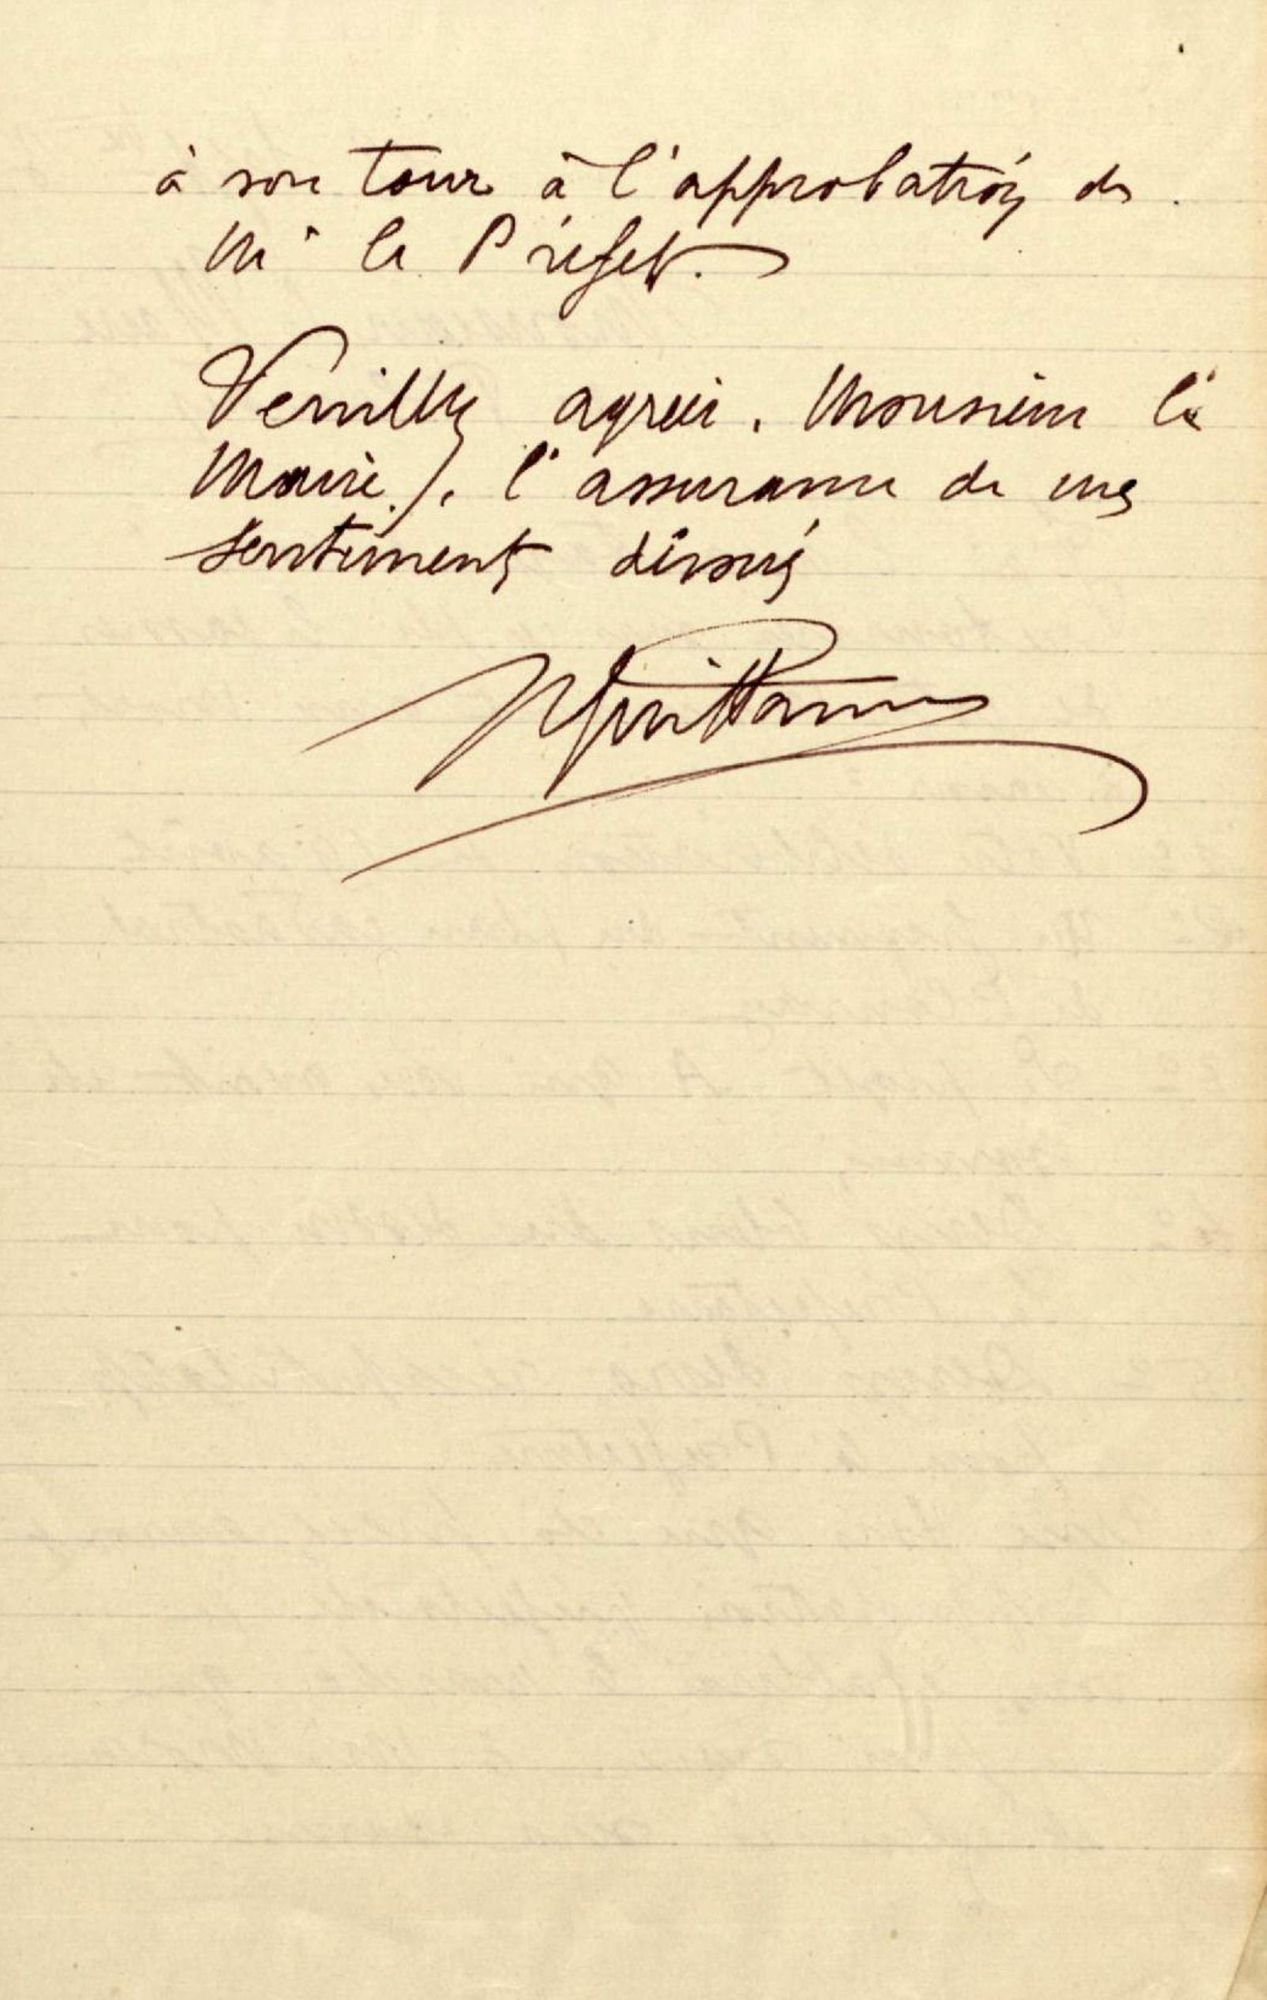 à son tour à l'approbation de
Mr le Préfet.
Veuillez agréer, Monsieur le
Maire, l'assurance de mes
sentiments dévoués